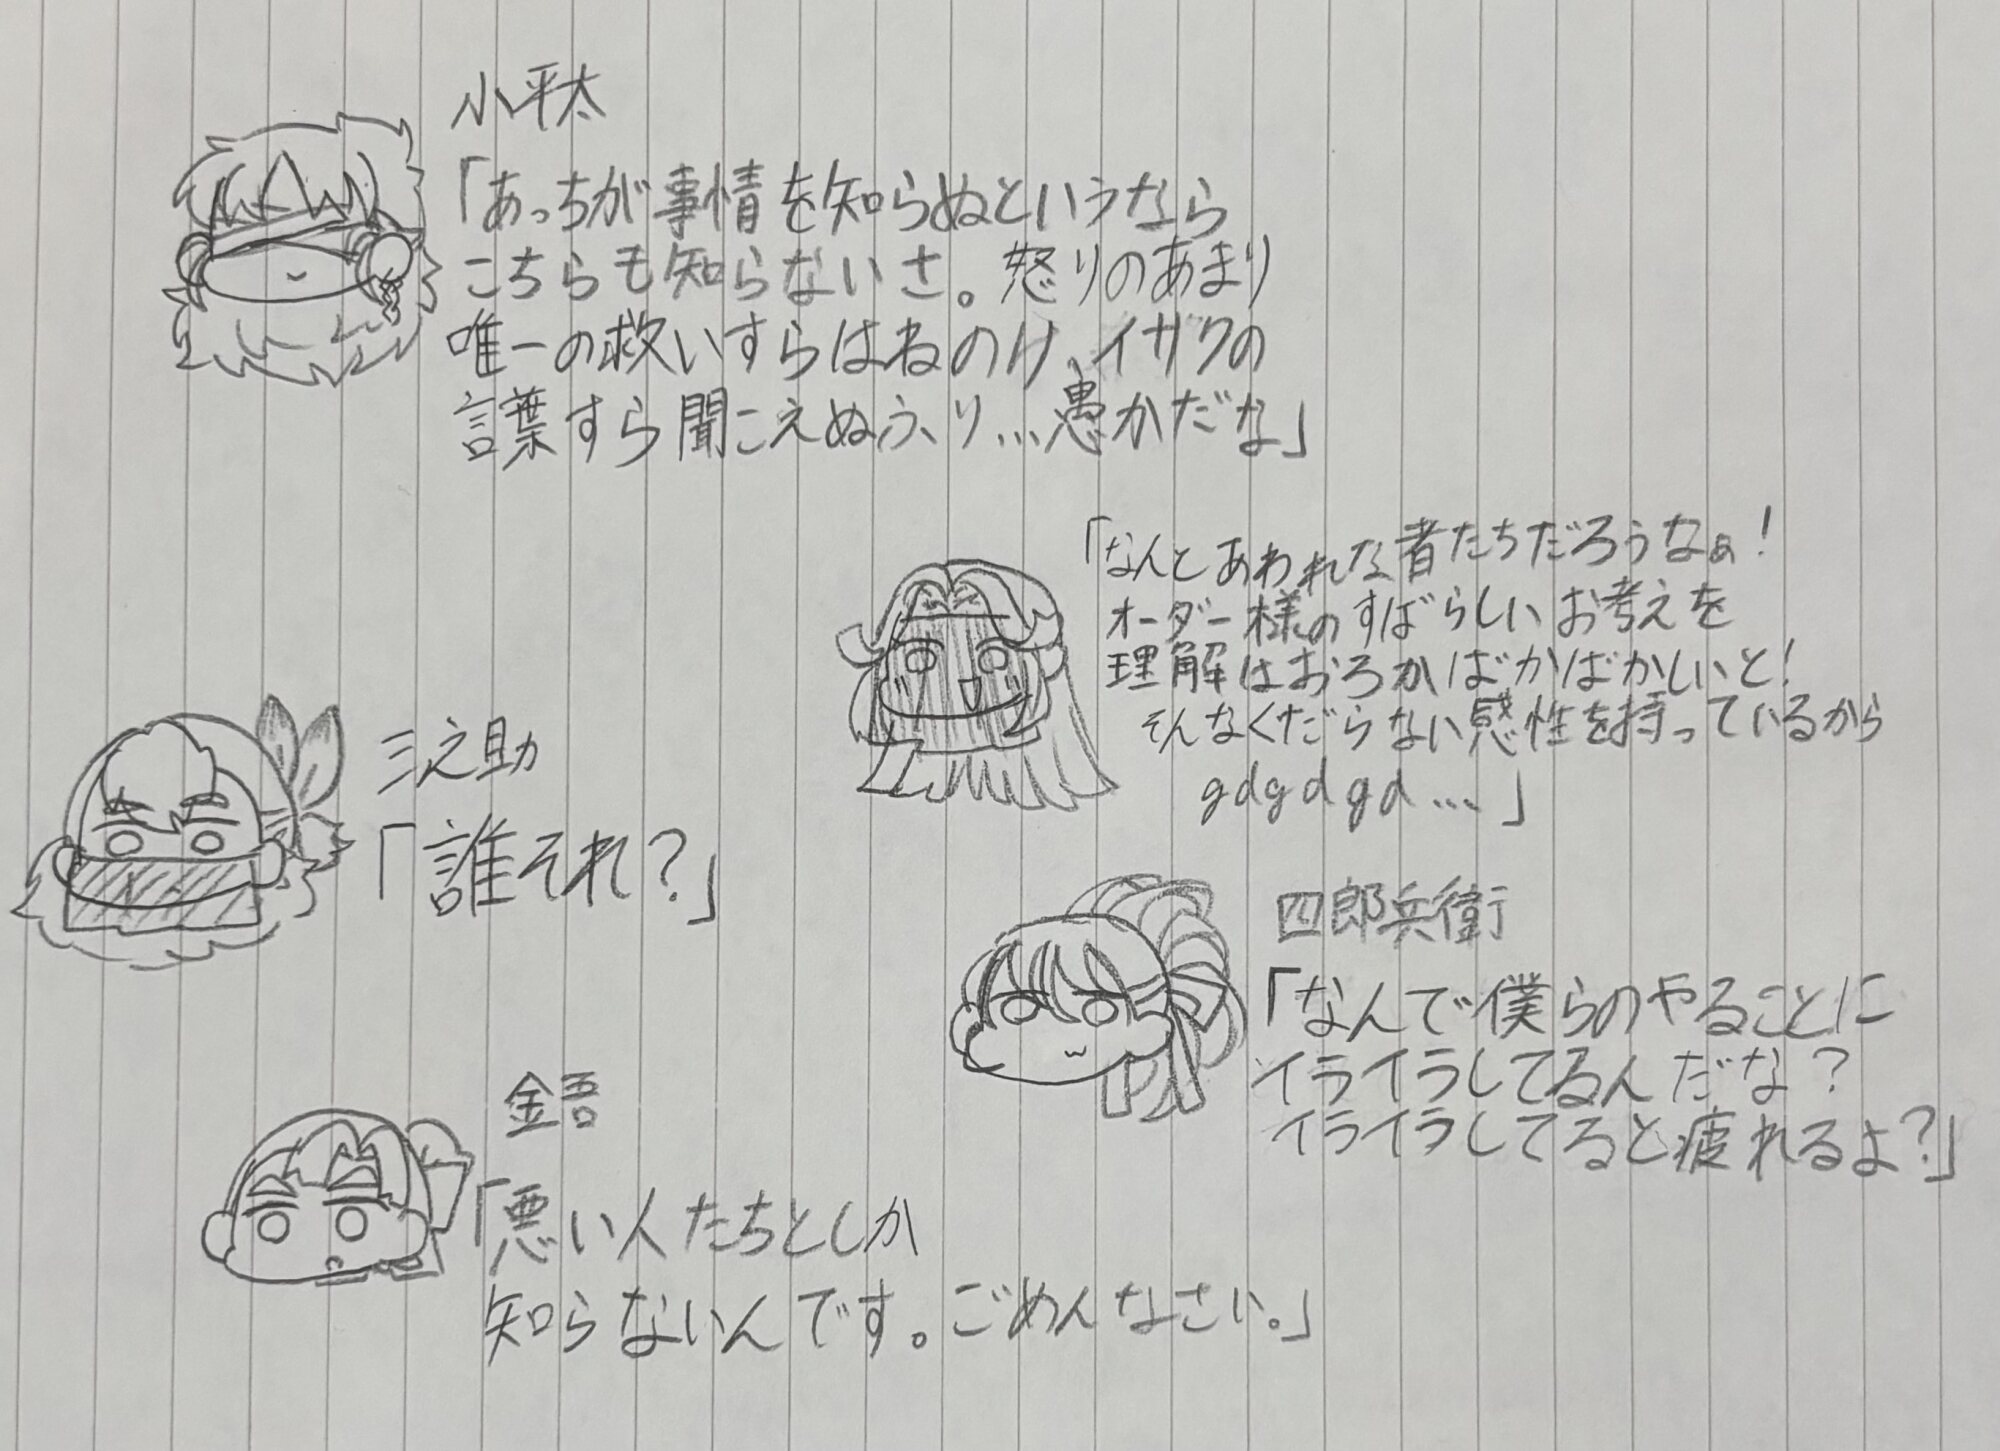 小平太
「あっちが事情を知らぬというなら
こちらも知らないさ。怒りのあまり
唯一の救いすらはねのけ、イサクの
言葉すら聞こえぬふり…愚かだな」
「なんとあわれな者たちだろうなぁ!
オーダー様のすばらしいお考えを
理解はおろかばかばかしいと!
そんなくだらない感性を持っているから
gdgdgd…」
三之助
「誰それ?」
四郎兵衛
「なんで僕らのやることに
イライラしてるんだな?
イライラしてると疲れるよ?」
金吾
「悪い人たちとしか
知らないんです。ごめんなさい。」